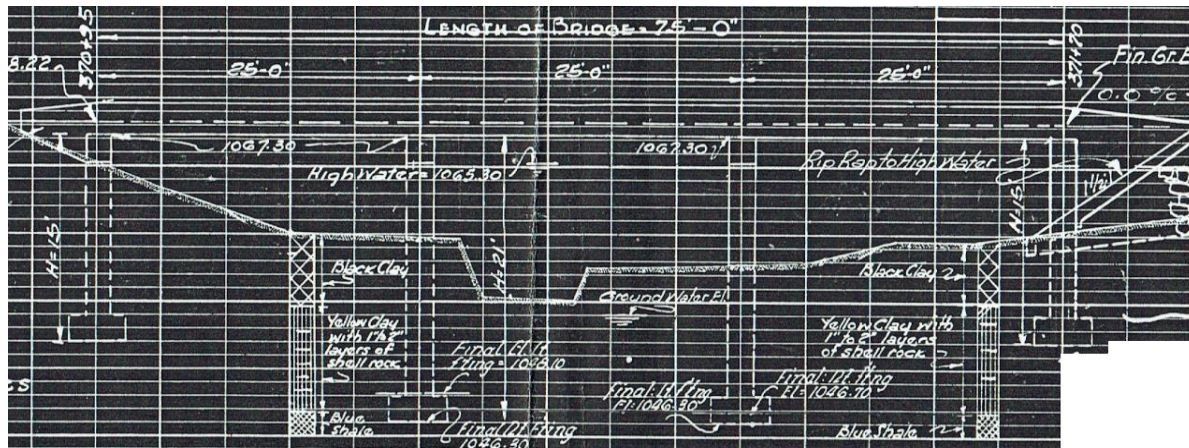 LENGTH OF BRIDGE = 75'-0"
370+95
371+70
8.22
25'-0"
25'-0"
25'-0"
Fin. Gr. E
0.0%
1067.30
1067.30
High Water = 1065.30
Rip Rap to High Water
1½:1
H=15'
H=21'
H=15'
Black Clay
Black Clay
Ground Water El.
Yellow Clay
with 1" to 2"
layers of
shell rock
Yellow Clay with
1" to 2" layers
of shell rock
Final El. Lt.
ftng = 1046.10
Final Lt. ftng
El = 1046.30
Final Rt. ftng
El = 1046.70
Blue
shale
Final Rt. ftng
1046.30
Blue Shale